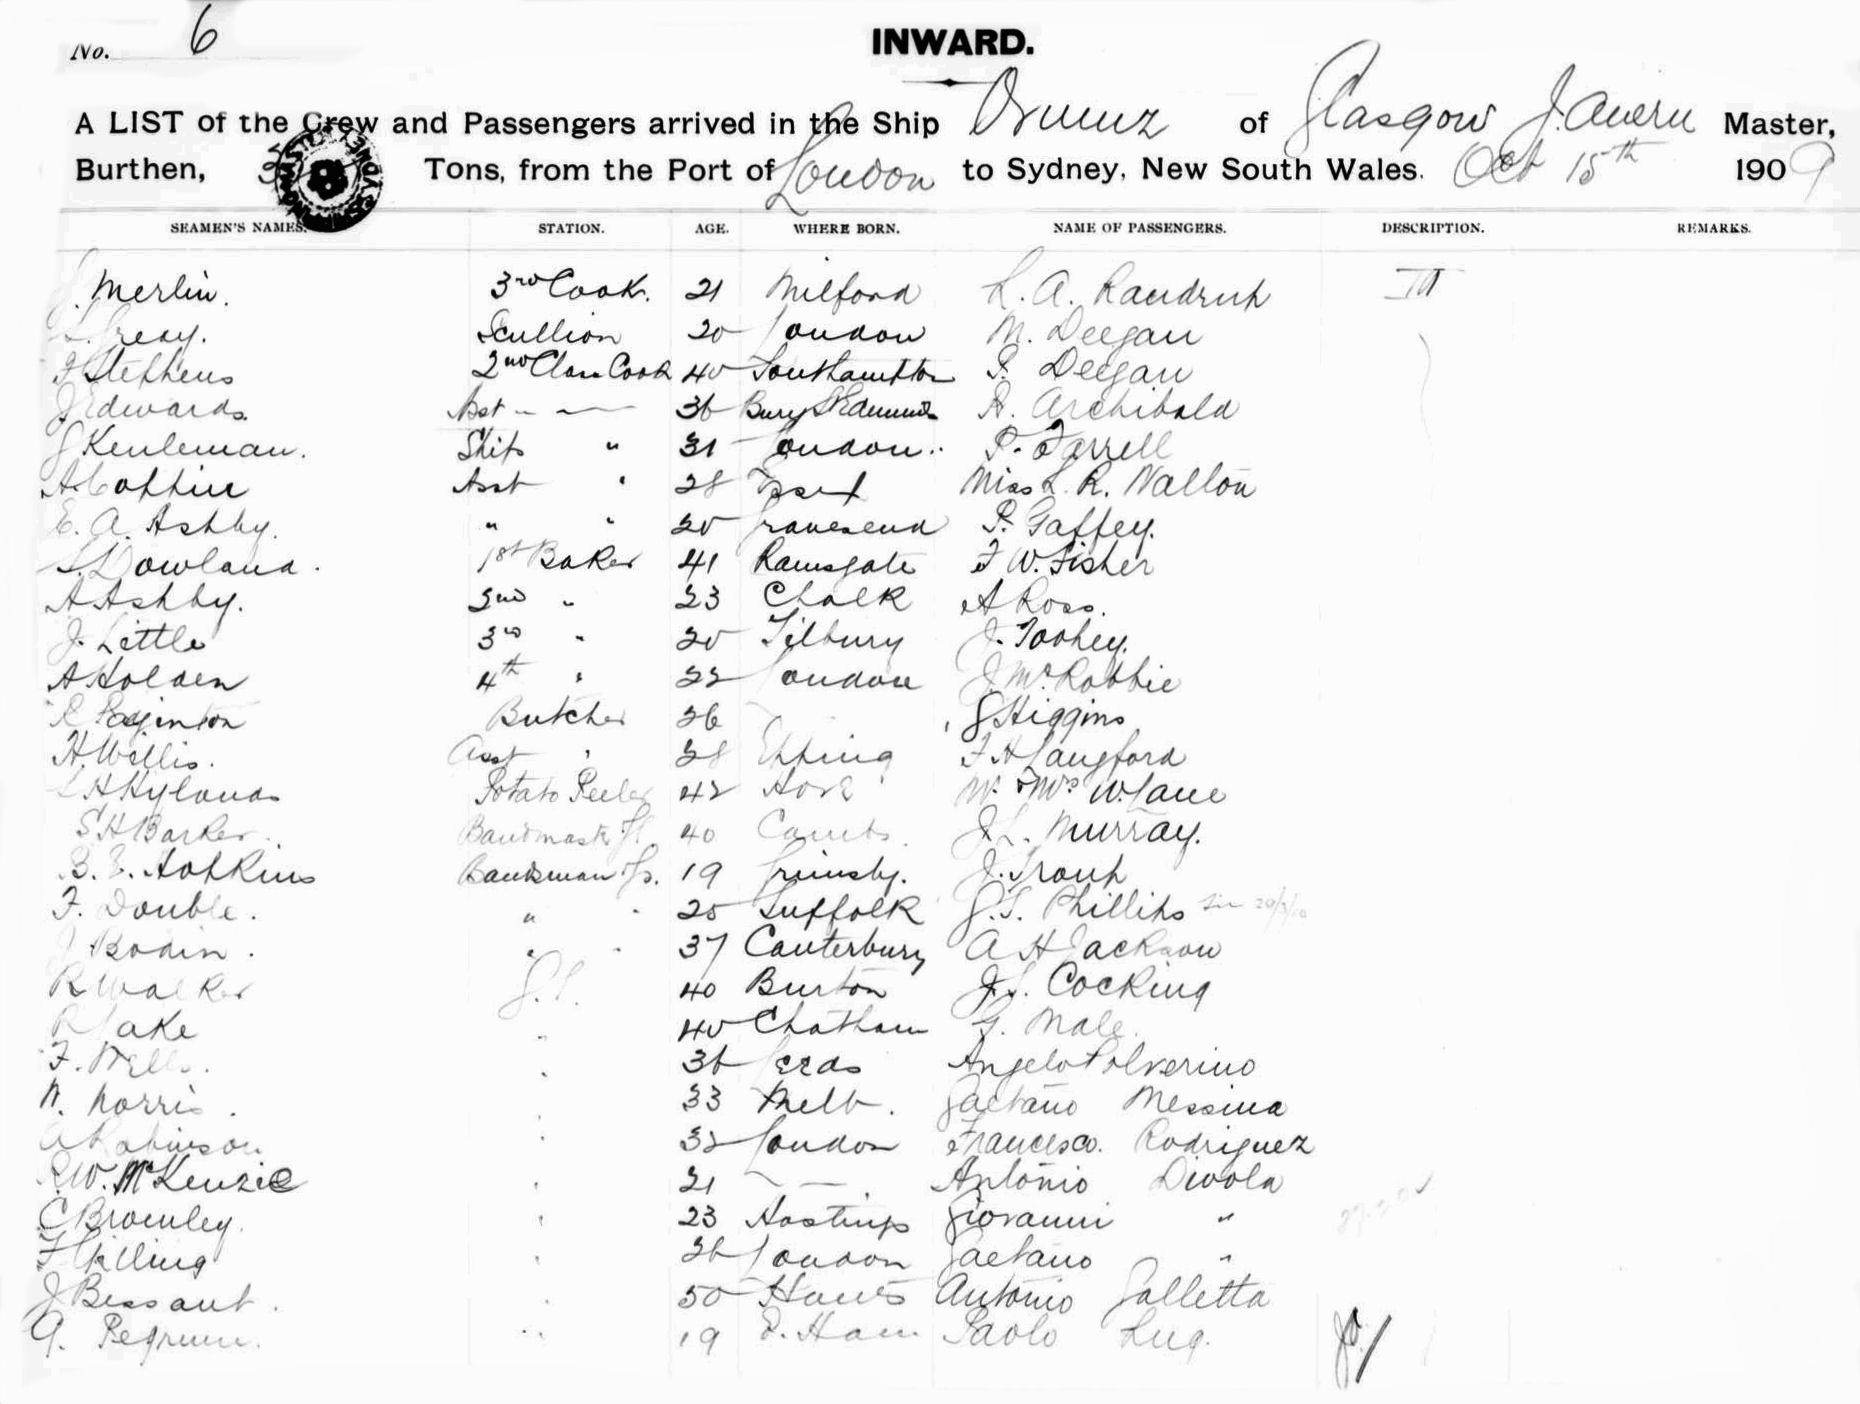 No. 6
INWARD.
A LIST of the Crew and Passengers arrived in the Ship Ormuz of Glasgow J. Master,
Burthen, Tons, from the Port of London to Sydney, New South Wales. Oct 15th 1909
SEAMEN'S NAMES. STATION. AGE. WHERE BORN. NAME OF PASSENGERS. DESCRIPTION. REMARKS.
J. Merlin. 3rd Cook. 21 Milford L. A. Raudrup III
Scullion 20 London M. Deegan
F Stephens 2nd Class Cook 40 Southampton P. Deegan
J Edwards Asst - — 36 Bury St Edmunds A. Archibald
J Keuleman. Ships " 31 London.. P. Farrell
A. Coffin Asst " 28 Miss L. R. Nalton
E. A. Ashby. " " 20 Gravesend P. Gaffey.
Dowland. 1st Baker 41 Ramsgate F W. Fisher
A Ashby. 2nd " 23 Chalk A Ross.
J. Little 3rd " 20 Tilbury J. Toohey.
A Holden 4th " 22 London J. McRobbie
R Butcher 26 J Higgins
H. Willis. Asst " 28 Epping F H Langford
H Hylands Potato Peeler 42 Mr. & Mrs W. Lane
S H Barker. Bandmaster 40 Cambs. J L. Murray.
B. E. Hopkins Bandsman 19 Grimsby. J. Troup
F. Double. " " 25 Suffolk J. S. Phillips
J Bodin. " " 37 Canterbury A H Jackson
R Walker 40 Burton J. S. Cocking
R Lake " 40 Chatham G. Male.
F. Wells. " 36 Leeds Angelo Polverino
W. Norris. " 33 Melb. Gaetano Messina
A Robinson " 32 London Francesco. Rodriguez
R. W. McKenzie " 21 — — Antonio Divola
C Bromley. " 23 Hastings Giovanni "
" 26 London Gaetano "
J Bessant. " 50 Hants Antonio Galletta
A. Pegrum. " 19 E. Ham Paolo